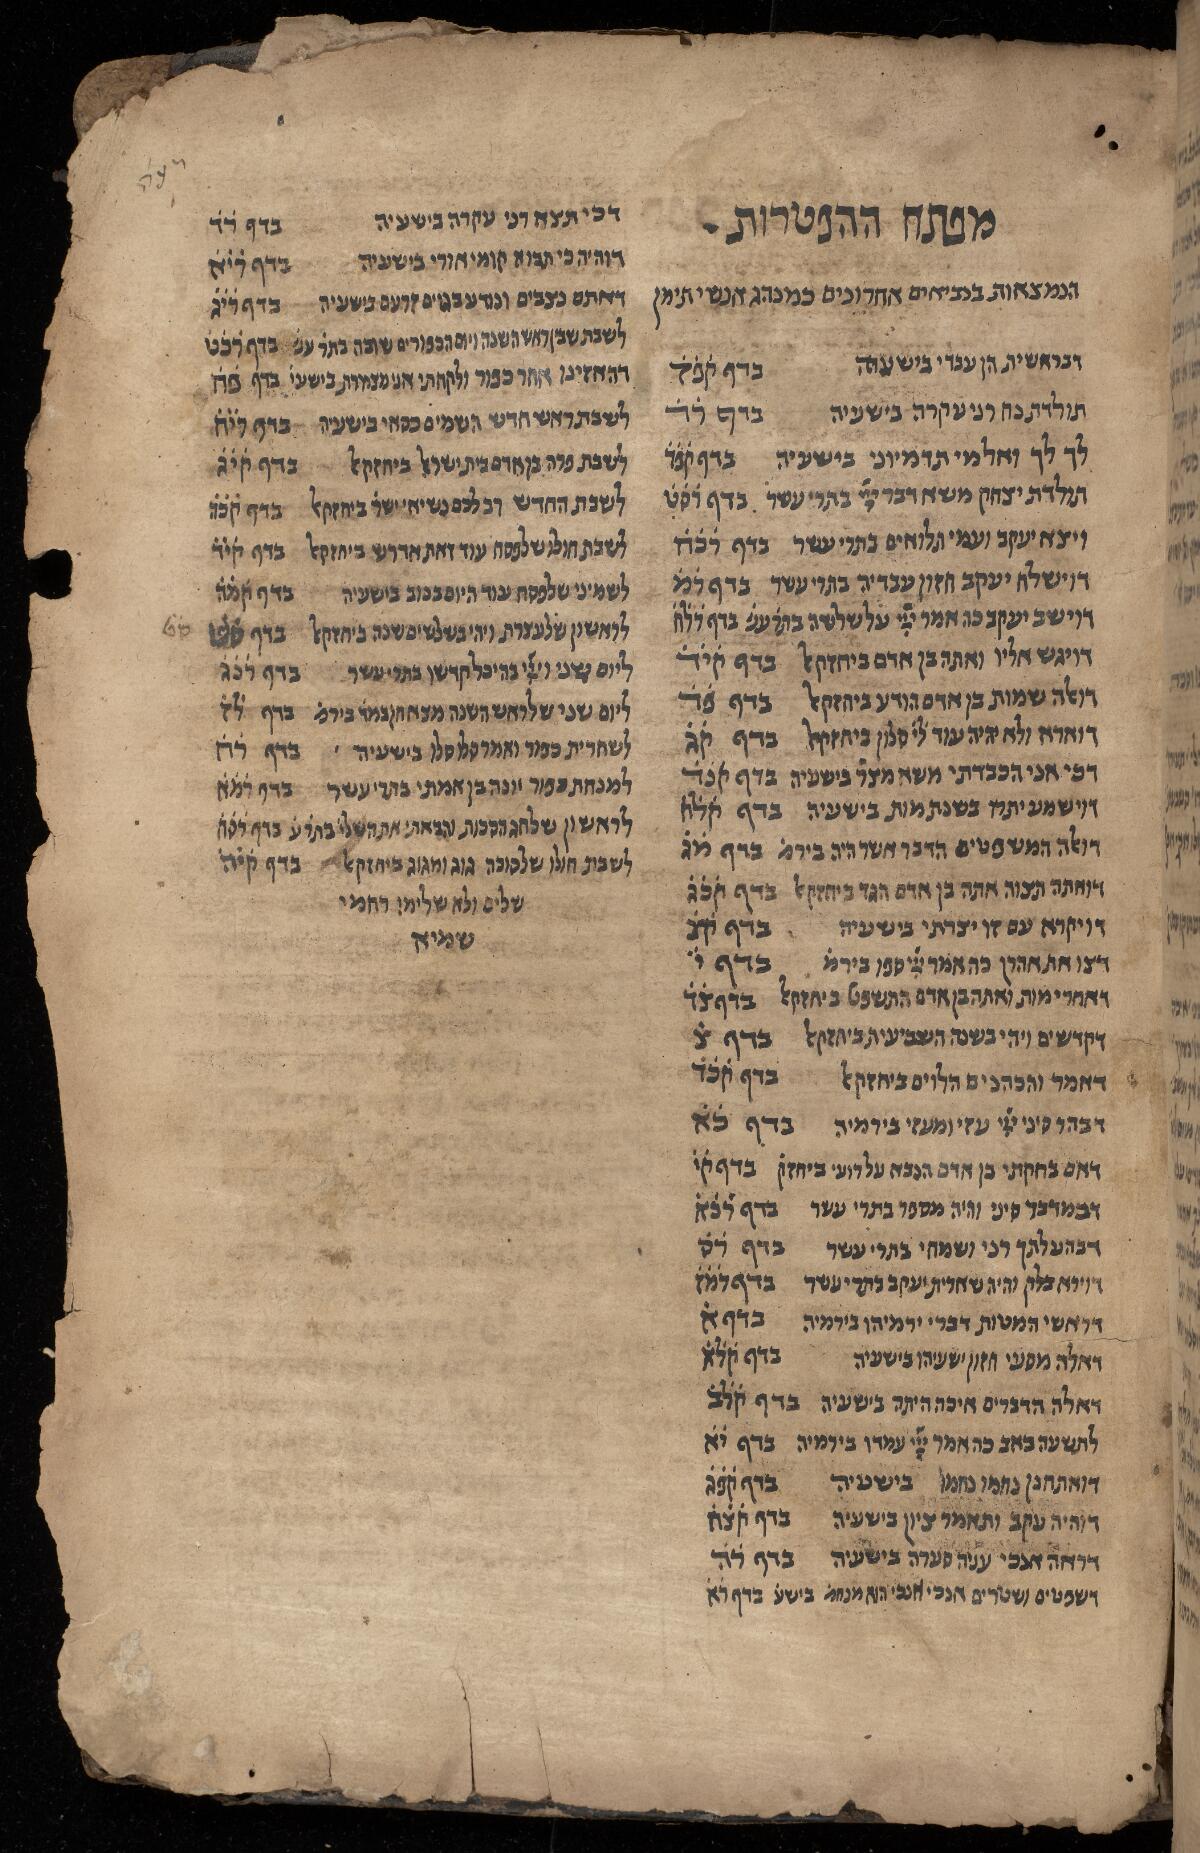 מפתח ההפטרות
הנמצאות בנביאים אחרונים כמנהג אנשי תימן
דבראשית הן עבדי בישעיה בדף קפד
תולדת נח רני עקרה בישעיה בדף רד
לך לך ואל מי תדמיוני בישעיה בדף קפד
תולדת יצחק משא דבר בתרי עשר בדף רסט
ויצא יעקב ועמי תלואים בתרי עשר בדף רכח
דוישלח יעקב חזון עבדיה בתרי עשר בדף רמ
דוישב יעקב כה אמר על שלשה בתר עש בדף רלח
דויגש אליו ואתה בן אדם ביחזקאל בדף קיד
דואלה שמות בן אדם הודע ביחזקאל בדף פד
דוארא ולא יהיה עוד לי סלון ביחזקאל בדף קג
דכי אני הכבדתי משא מצר בישעיה בדף
דוישמע יתרו בשנת מות בישעיה בדף קלח
דואלה המשפטים הדבר אשר היה בירמ בדף מג
דואתה תצוה אתה בן אדם הגד ביחזקאל בדף קכג
דויקרא עם זו יצרתי בישעיה בדף קצ
דצו את אהרן כה אמר ספו בירמ בדף י
דאחרי מות ואתה בן אדם התשפט ביחזקאל בדף צד
דקדשים ויהי בשנה השביעית ביחזקאל בדף צ
דאמר והכהנים הלוים ביחזקאל בדף קכד
דבהר סיני עזי ומעזי בירמיה בדף כא
דאם בחקתי בן אדם הנבא על רועי ביחזק בדף קו
דבמדבר סיני והיה מספר בתרי עשר בדף רכא
דבהעלתך רני ושמחי בתרי עשר בדף רס
דוירא בלק והיה שארית יעקב בתרי עשר בדף רמז
דראשי המטות דברי ירמיהו בירמיה בדף א
דאלה מסעי חזון ישעיהו בישעיה בדף קלא
דאלה הדברים איכה היתה בישעיה בדף קלב
לתשעה באב כה אמר עמדו בירמיה בדף יא
דואתחנן נחמו נחמו בישעיה בדף קפג
דוהיה עקב ותאמר ציון בישעיה בדף קצח
דראה אנכי עניה סערה בישעיה בדף רה
דשפטים ושטרים אנכי אנכי הוא מנחמ בישע בדף רא
דכי תצא רני עקרה בישעיה בדף רד
דוהיה כי תבוא קומי אורי בישעיה בדף ריא
דאתם נצבים ונודע בגוים זרעם בישעיה בדף ריג
לשבת שבין ראש השנה ויום הכפורים שובה בתר עש בדף רכט
דהאזינו אחר כפור ולקחתי אני מצמרת בישעי בדף פח
לשבת ראש חדש השמים כסאי בישעיה בדף ריח
לשבת פרה בן אדם בית ישראל ביחזקאל בדף קיג
לשבת החדש רב לכם נשיאי ישר ביחזקאל בדף קכה
לשבת חולו שלפסח עוד זאת אדרש ביחזקאל בדף קיד
לשמיני שלפסח עוד היום בנוב בישעיה בדף קמה
לראשון שלעצרת ויהי בשלשים שנה ביחזקאל בדף סט
ליום שני בהיכל קדשו בתרי עשר בדף רסג
ליום שני שלראש השנה מצא חן במד בירמ בדף לז
לשחרית כפור ואמר סלו סלו בישעיה בדף רח
למנחת כפור יונה בן אמתי בתרי עשר בדף רמא
לראשון שלחג הסכות והבאתי את השלי בתר ע בדף
לשבת חולו שלסוכה גוג ומגוג ביחזקאל בדף קיח
שלים ולא שלימו רחמי
שמיא